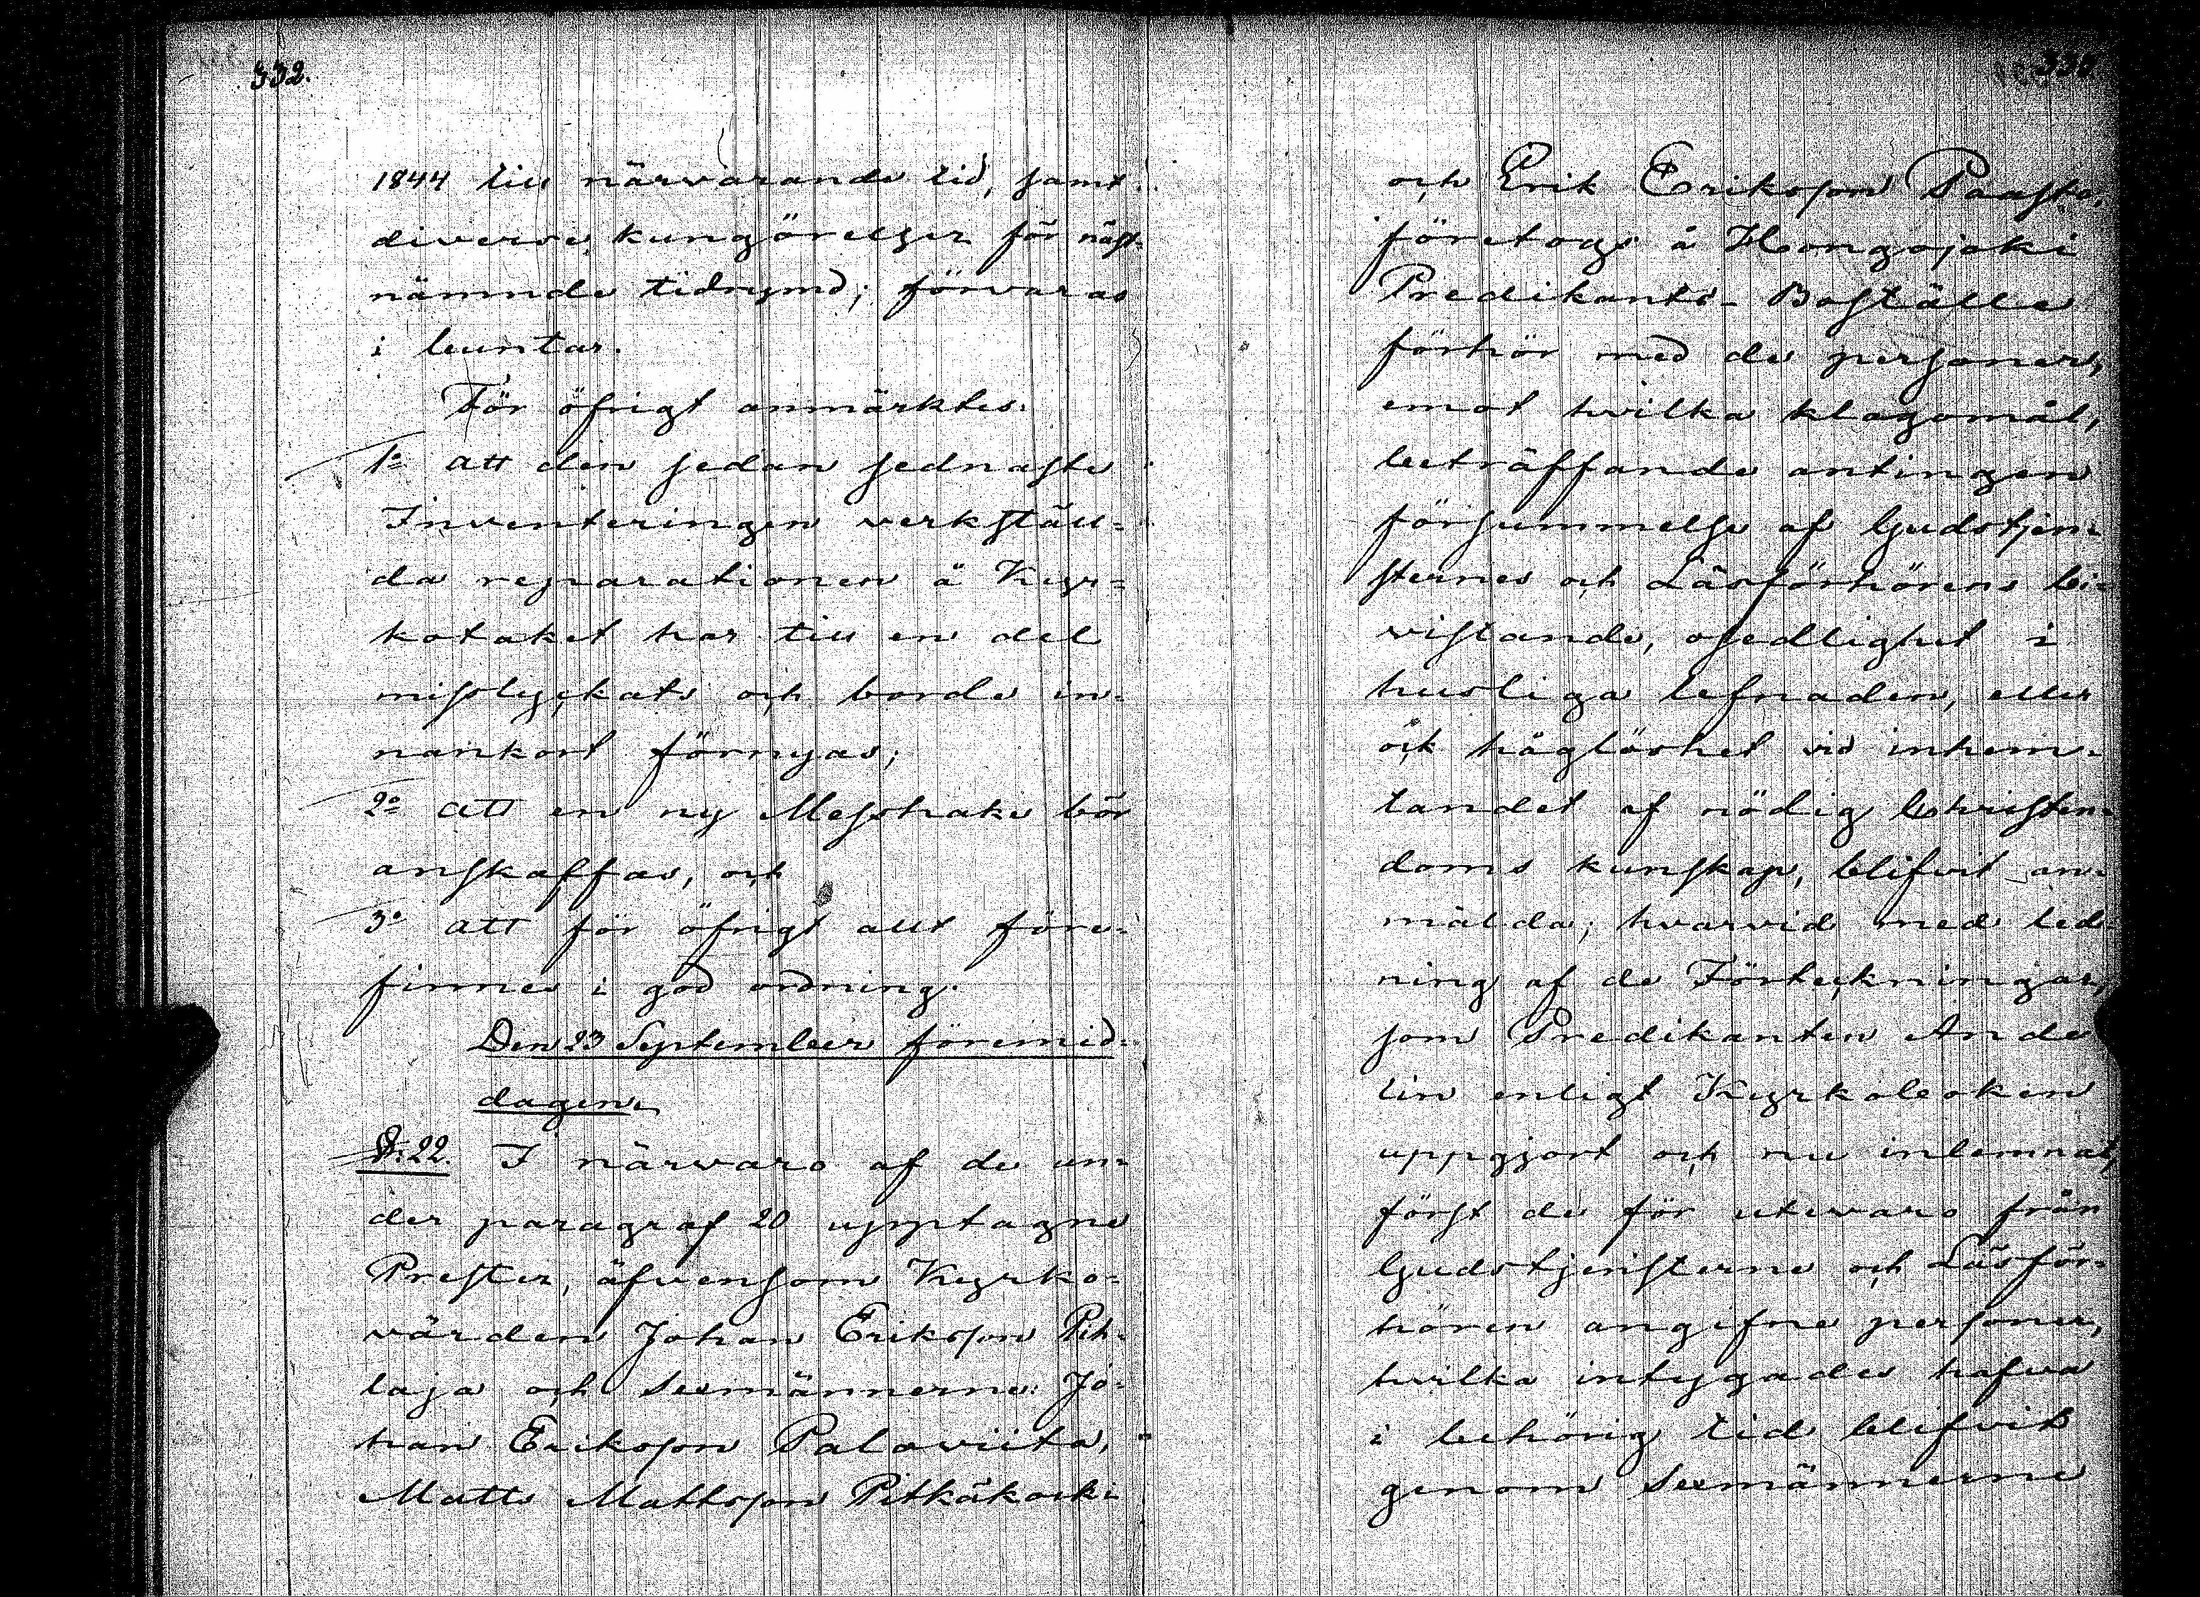 332.
1844 till närvarande tid, samt
diverse kungörelser för näst-
nämnde tidrymd; förvaras
i buntar.
För öfrigt anmärktes:
1o att den sedan sednaste
Inventeringen verkställ=
da reparationen å Kyr=
kotaket har till en del
misslyckats och borde in-
nankort förnyas;
2o att en ny Messhake bör
anskaffas, och
3o att för öfrigt allt före-
finnes i god ordning.
Den 23 September förmid-
dagen.
§. 22. I närvaro af de un-
der paragraf 20 upptagne
Prester, äfvensom Kyrko-
värden Johan Eriksson Pih-
laja och Sexmännerne: Jo-
han Eriksson Paloviita,
Matts Mattsson Pitkäkoski
333
och Erik Eriksson Paasto,
företogs å Hongojoki
Predikants-Boställe
förhör med de personer,
emot hvilka klagomål,
beträffande antingen
försummelse af Gudstjen-
sternes och Läsförhörens bi-
vistande, osedlighet i
husliga lefnaden, eller
ock håglöshet vid inhem-
tandet af nödig Christen-
doms kunskap, blifvit an-
mälda; hvarvid med led-
ning af de Förteckningar,
som Predikanten Ande
lin enligt Kyrkoboken
uppgjort och nu inlemnat,
först de för utevaro från
Gudstjensterne och Läsför-
hören angifne personer,
hvilka intygades hafva
i behörig tid blifvit
genom Sexmännerne